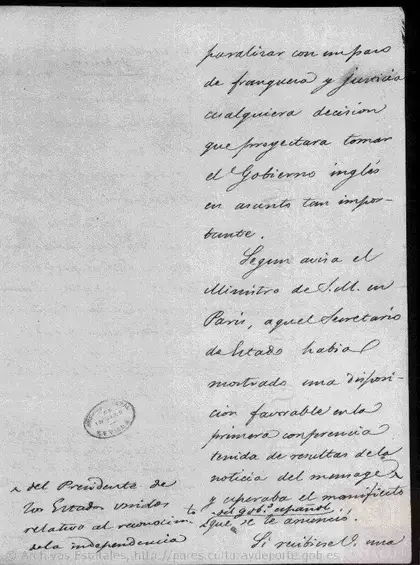 paralizar con un paso
de franqueza y justicia
cualquiera decision
que proyectara tomar
el Gobierno inglés
en asunto tan impor-
tante.
Segun avisa el
Ministro de S.M. en
Paris, aquel Secretario
de Estado habia
mostrado una disposi
cion favorable en la
primera conferencia
tenida de resultas de la
noticia del mensage
y esperaba el manifiesto
del gob.º español
que se te anunció.
Si recibise V. una
^ del Presidente de
los Estados unidos
relativo al reconocim.to
de la independencia
SEVILLA
© Archivos Estatales, http://pares.culturaydeporte.gob.es